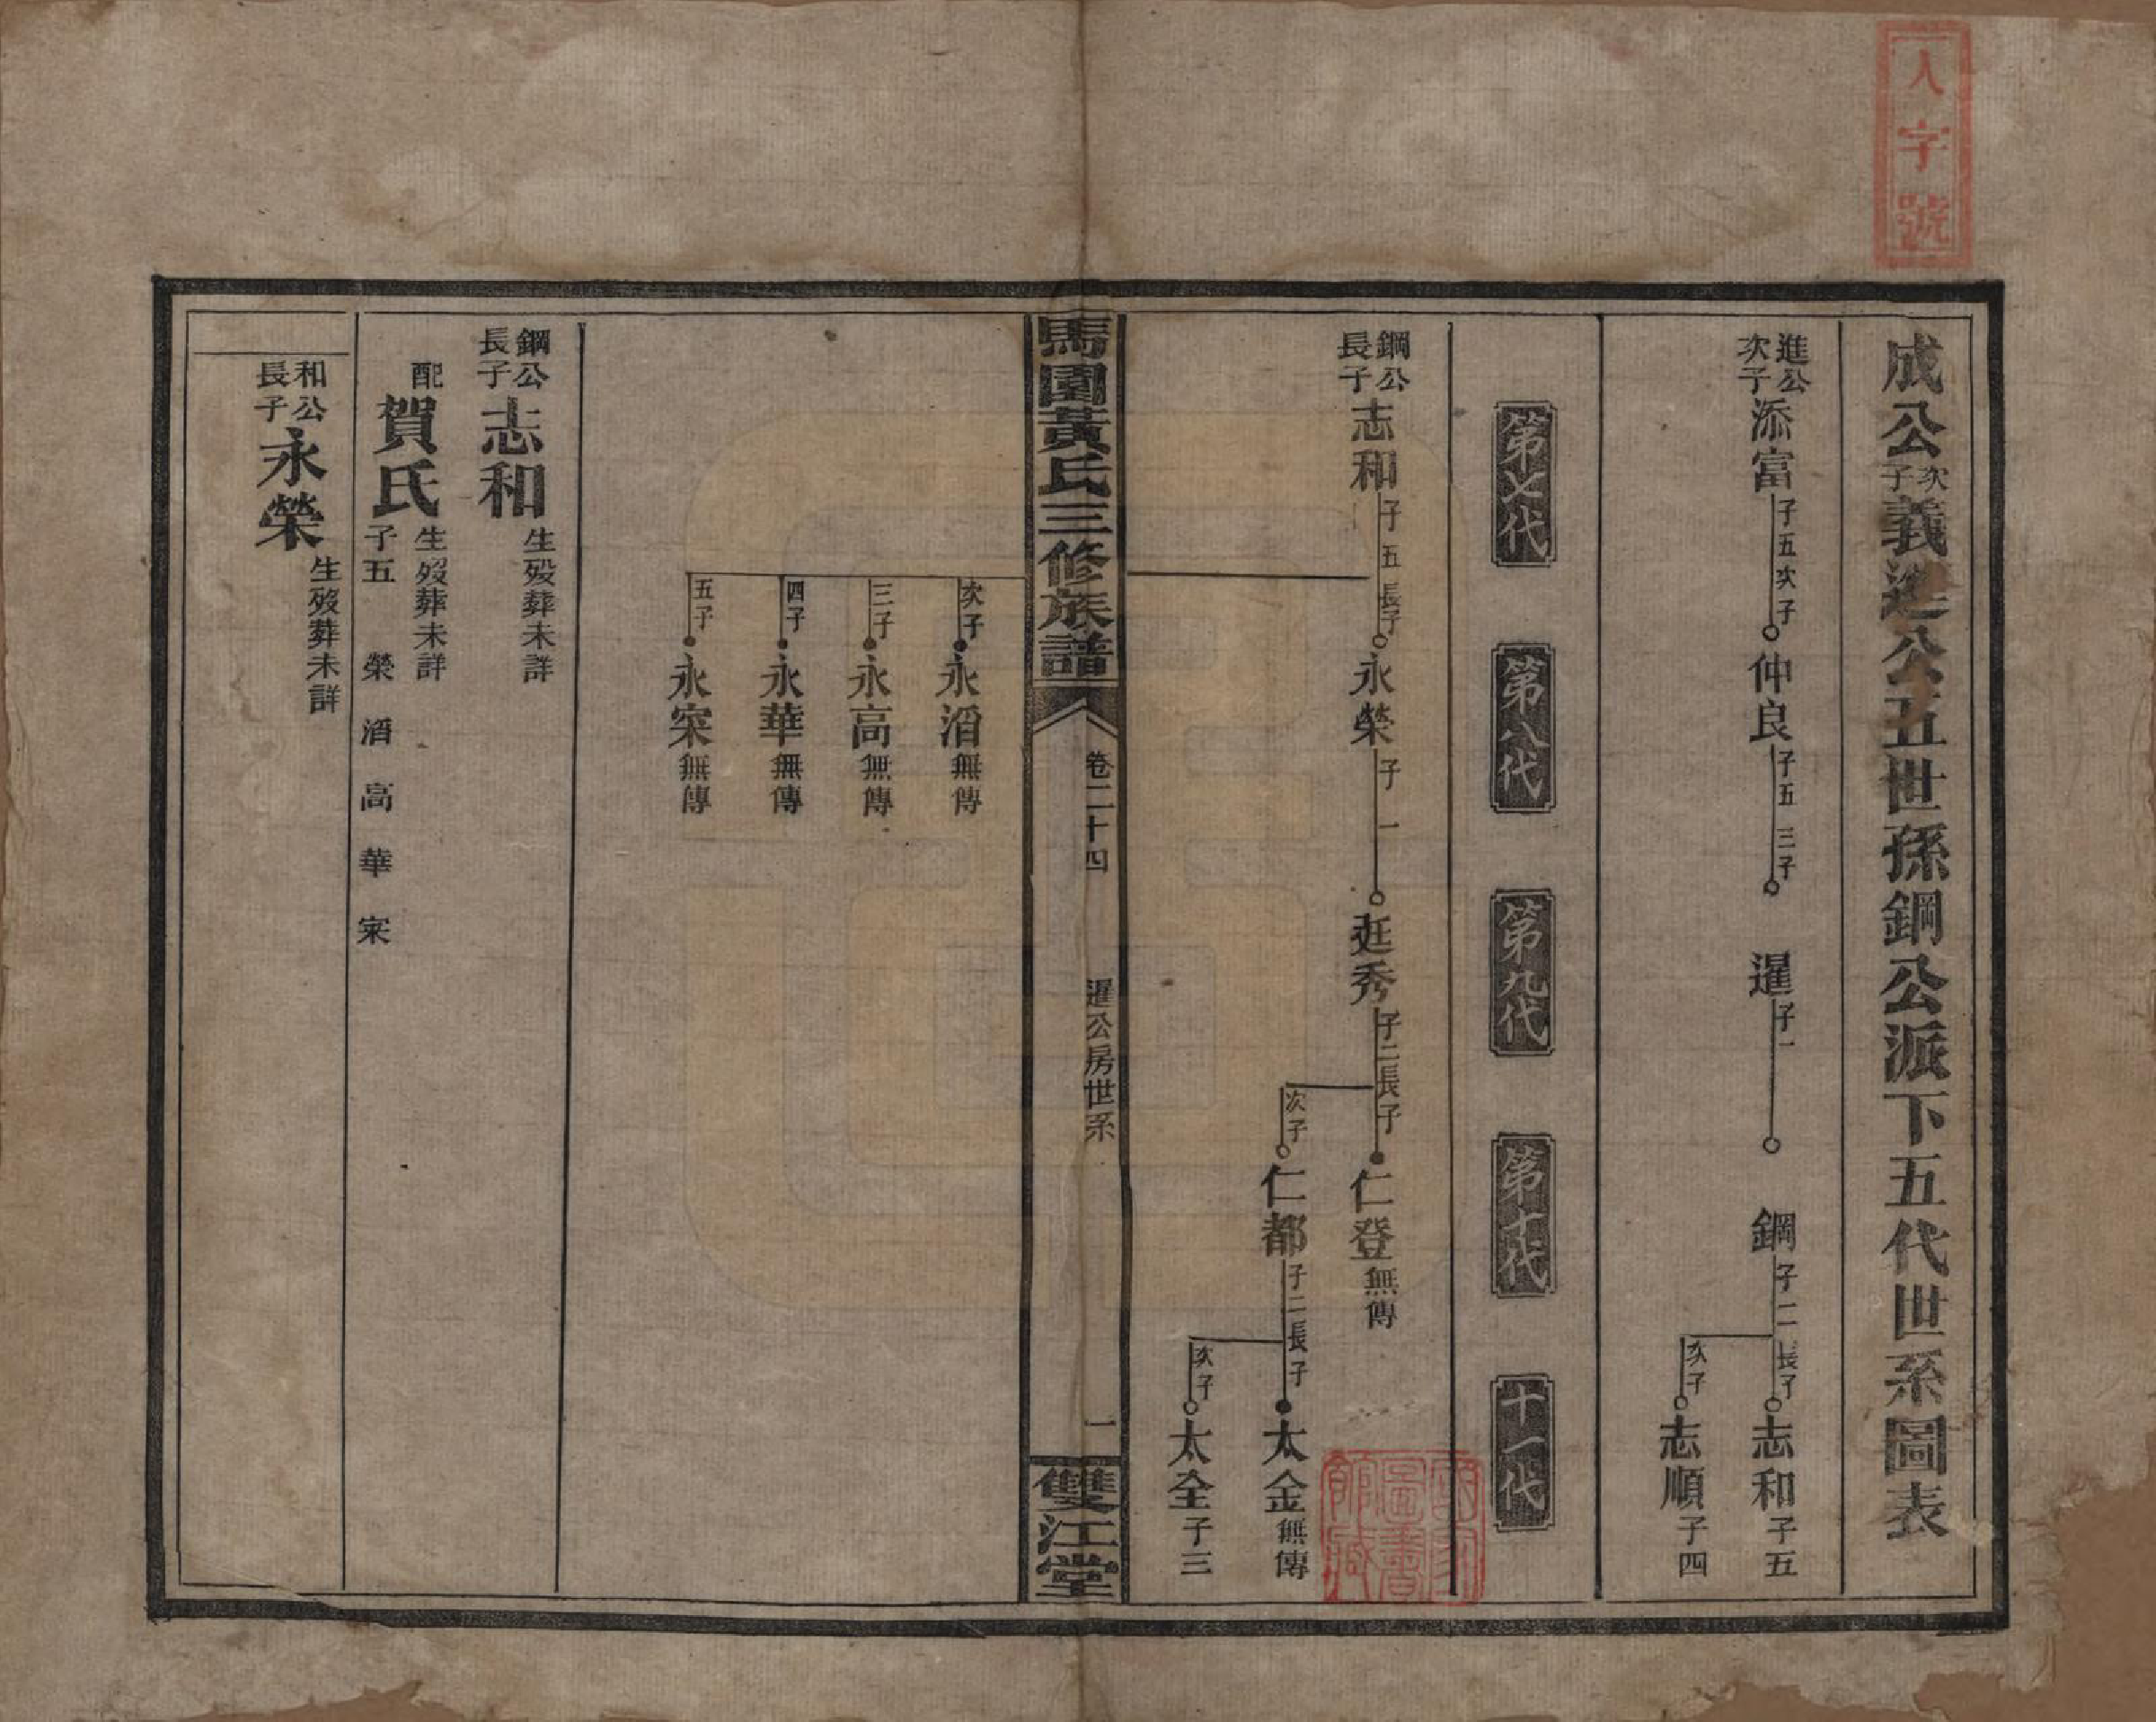 人字號
成公次子義進公五世孫鋼公派下五代世系圖表
進公次子添富子五次子仲良子五三子暹子一鋼子二長子志和子五
次子志順子四
第七代 第八代 第九代 第十代 十一代
鋼公長子志和子五長子永榮子一廷秀子二長子仁登無傳
次子仁都子二長子太金無傳
次子太全子三
馬園黃氏三修族譜 卷二十四 暹公房世系 一 雙江堂
次子永湑無傳
三子永高無傳
四子永華無傳
五子永寀無傳
鋼公長子志和生歿葬未詳
配賀氏生歿葬未詳
子五 榮 湑 高 華 寀
和公長子永榮生歿葬未詳